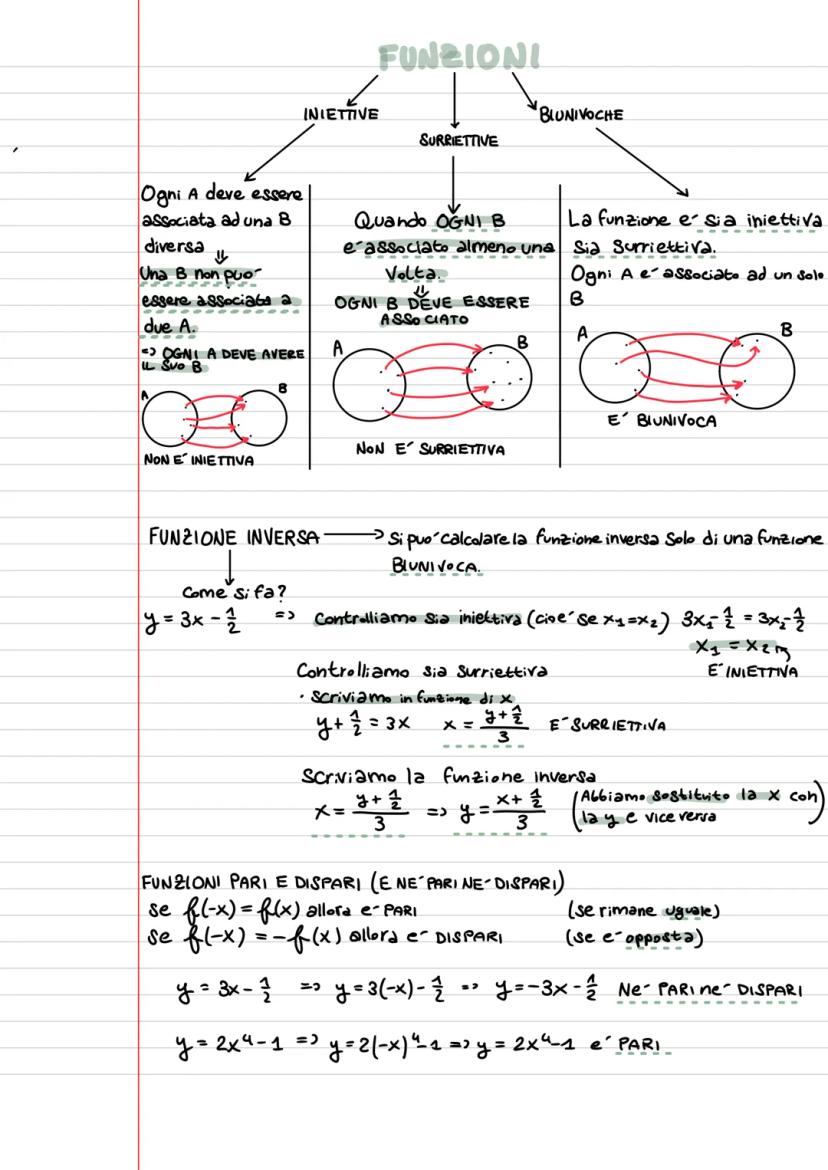 FUNZIONI
INIETTIVE
SURRIETTIVE
BIUNIVOCHE
Ogni A deve essere
associata ad una B
diversa ⇓
Una B non puo'
essere associata a
due A.
=> OGNI A DEVE AVERE
IL SUO B
A B
NON E' INIETTIVA
Quando OGNI B
e' associato almeno una
Volta.
⇓
OGNI B DEVE ESSERE
ASSOCIATO
A B
NON E' SURRIETTIVA
La funzione e' sia iniettiva
sia surriettiva.
Ogni A e' associato ad un solo
B
A B
E' BIUNIVOCA
FUNZIONE INVERSA → Si puo' calcolare la funzione inversa solo di una funzione
BIUNIVOCA.
Come si fa?
y = 3x - 1/2 => Controlliamo sia iniettiva (cioe' se x₁=x₂) 3x₁- 1/2 = 3x₂- 1/2
x₁ = x₂
E' INIETTIVA
Controlliamo sia surriettiva
· Scriviamo in funzione di x
y + 1/2 = 3x x = (y + 1/2)/3 E' SURRIETTIVA
Scriviamo la funzione inversa
x = (y + 1/2)/3 => y = (x + 1/2)/3 (Abbiamo sostituito la x con
la y e viceversa)
FUNZIONI PARI E DISPARI (E NE' PARI NE' DISPARI)
se f(-x) = f(x) allora e' PARI (se rimane uguale)
se f(-x) = -f(x) allora e' DISPARI (se e' opposta)
y = 3x - 1/2 => y = 3(-x) - 1/2 => y = -3x - 1/2 Ne' PARI ne' DISPARI
y = 2x⁴ - 1 => y = 2(-x)⁴ - 1 => y = 2x⁴ - 1 e' PARI